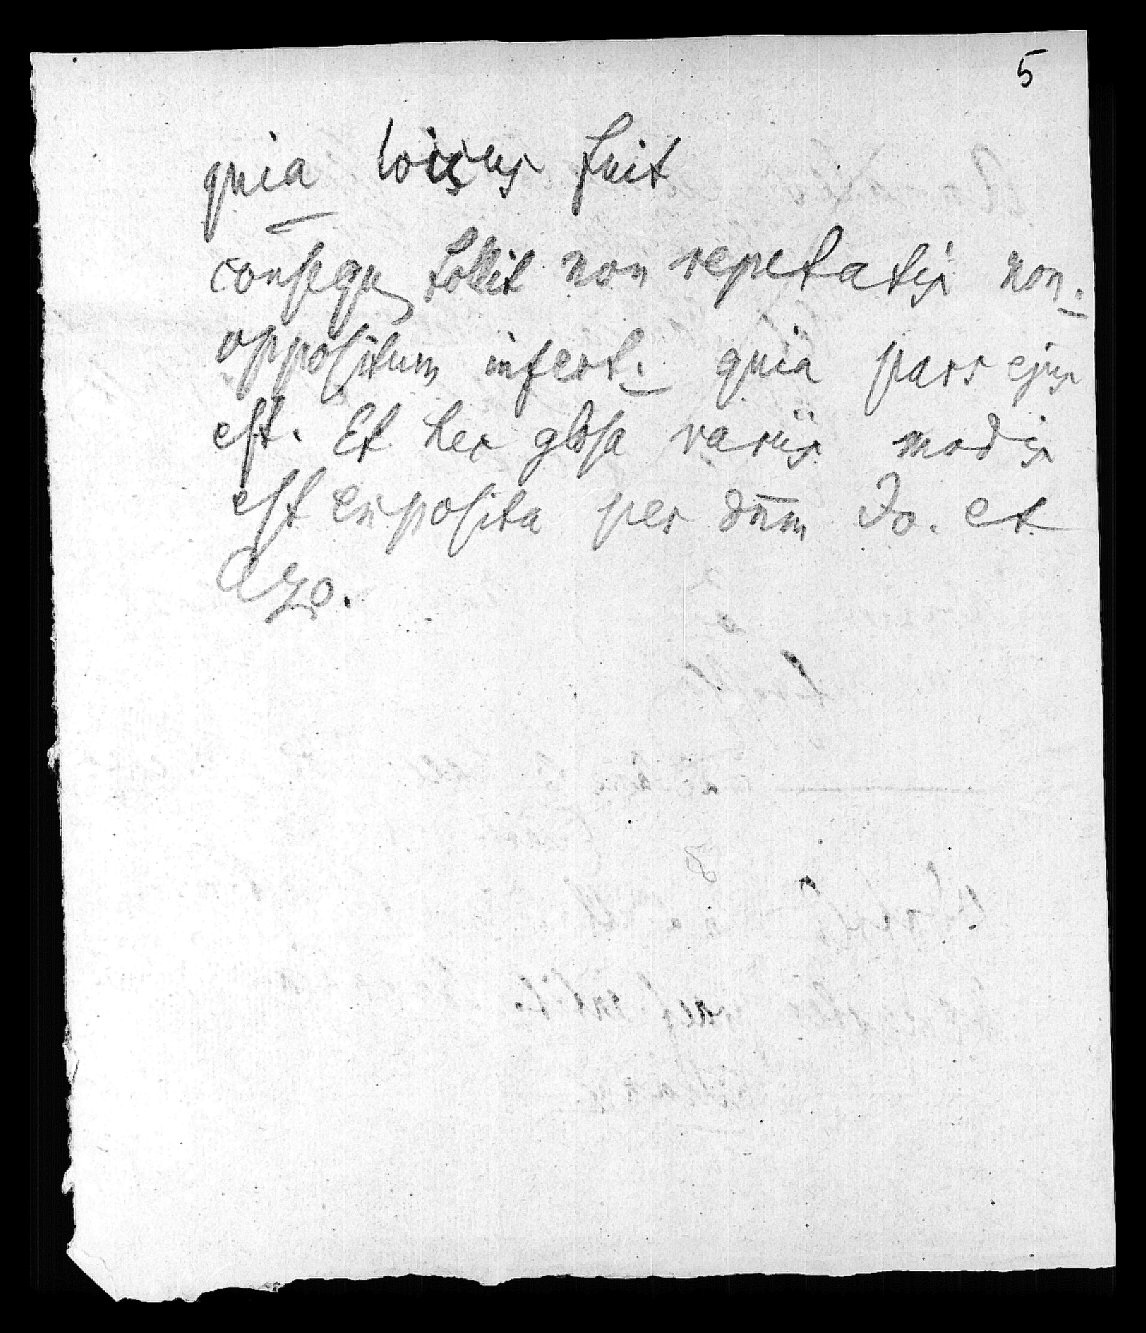 5
quia loicus fuit
consequ tollit non repetatis non.
oppositum infert. quia pars ejus
est. Et hec glosa variis modis
est exposita per dnm Jo. et
Azo.